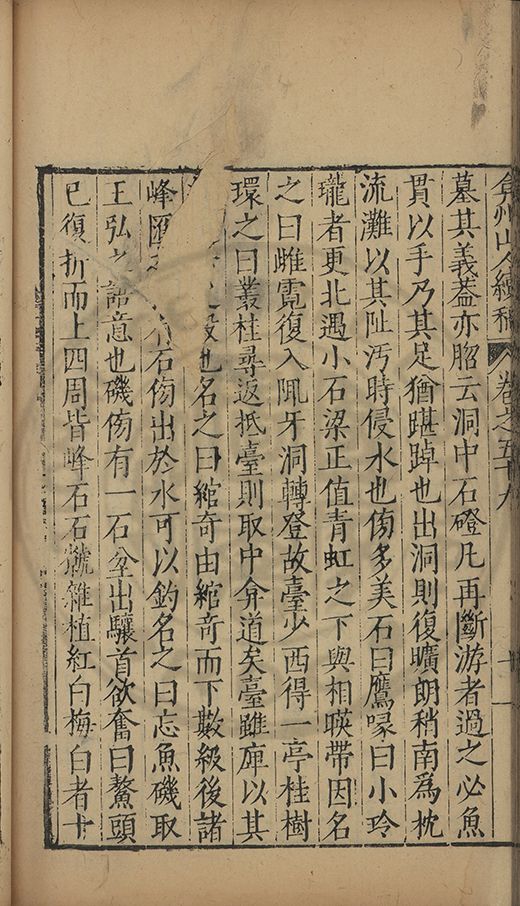 弇州山人續稿 卷之五十九 十一
墓其義蓋亦昭云洞中石磴凡再斷游者過之必魚
貫以手乃其足猶踸踔也出洞則復曠朗稍南爲枕
流灘以其阯汚時侵水也傍多美石曰鷹喙曰小玲
瓏者更北遇小石梁正值青虹之下與相暎帶因名
之曰雌霓復入陬牙洞轉登故臺少西得一亭桂樹
環之曰叢桂尋返抵臺則取中弇道矣臺雖庳以其
也名之曰綰奇由綰奇而下數級後諸
峰匯 石傍出於水可以釣名之曰忘魚磯取
王弘之語意也磯傍有一石坌出驤首欲奮曰鰲頭
已復折而上四周皆峰石石罅雜植紅白梅白者十